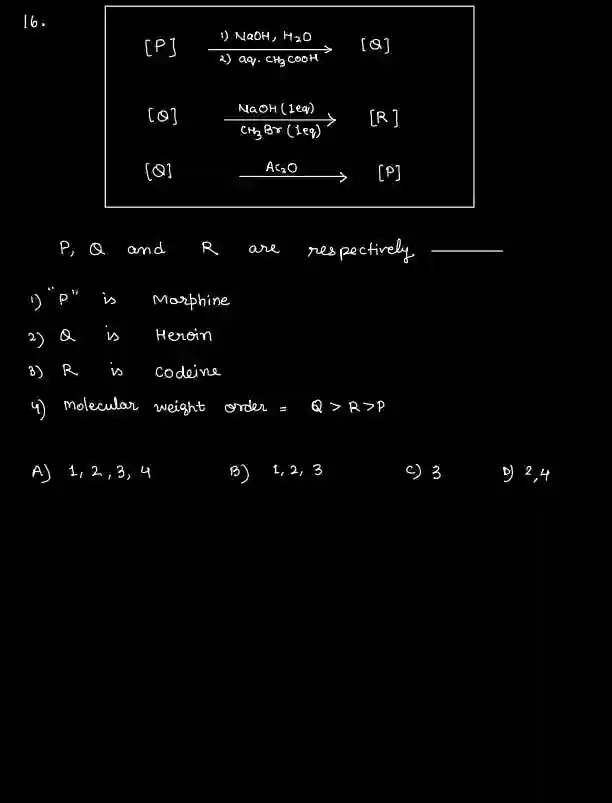 16.
[P] 1) NaOH, H₂O [Q]
2) aq. CH₃COOH
[Q] NaOH (1eq) [R]
CH₃Br (1eq)
[Q] Ac₂O [P]
P, Q and R are respectively
1) "P" is Morphine
2) Q is Heroin
3) R is Codeine
4) Molecular weight order = Q > R > P
A) 1, 2, 3, 4 B) 1, 2, 3 C) 3 D) 2,4